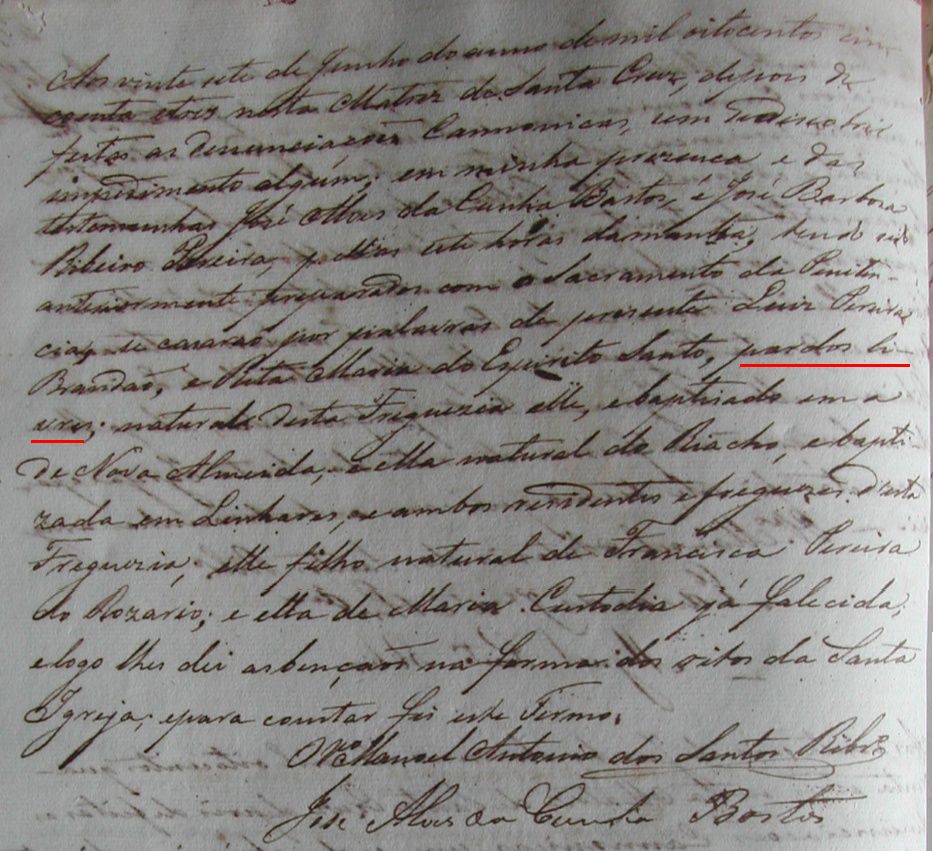 Aos vinte sete de Junho do anno de mil oitocentos cin
coenta e tres nesta Matriz de Santa Cruz, depois de
feitas as denunciaçoens Cannonicas, sem
impedimento algum, em minha prezença e das
testemunhas José Alves da Cunha Bastos, e José Barbosa
Ribeiro Pereira, sete horas damanhã, tendo sido
anteriormente preparados com o Sacramento da Peniten
cia, se cazarão por palavras de prezente Luiz Pereira
Brandaõ, e Rita Maria do Espirito Santo, pardos li
vres; naturals desta Freguezia elle, e baptizado em a
de Nova Almeida, e ella natural do Riacho, e bapti
zada em Linhares, e ambos rezidentes e freguezes d'esta
Freguezia; elle filho natural de Francisca Pereira
do Rozario; e ella de Maria Custodia já falecida;
e logo lhes dei asbençaõs na forma dos ritos da Santa
Igreja; epara constar fis este Termo.
Manoel Antonio dos Santos Ribrº
José Alves da Cunha Bastos